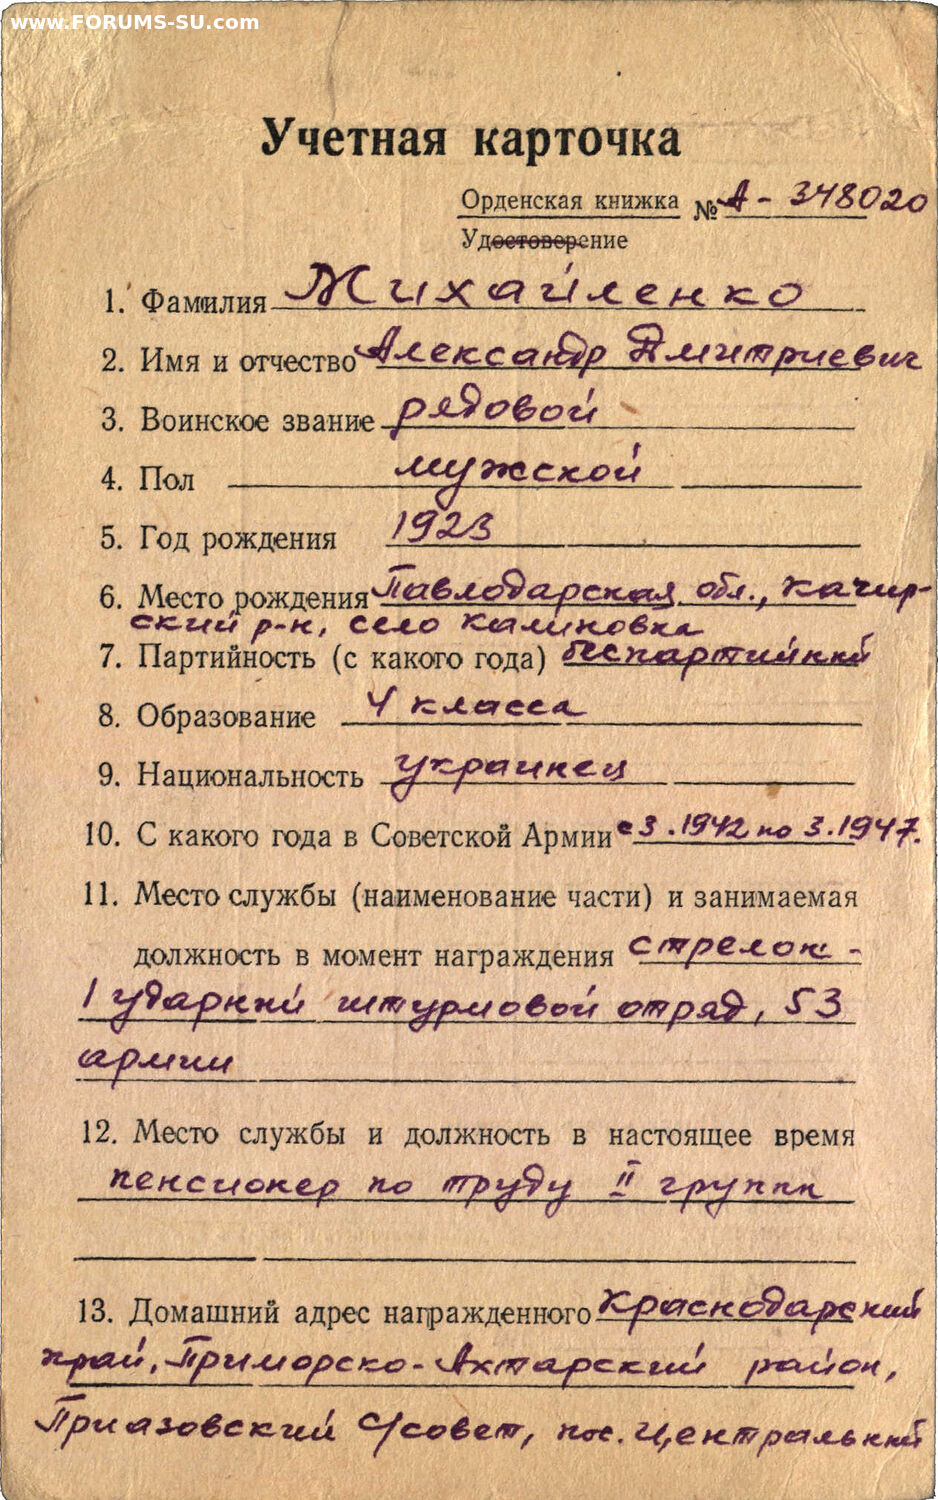 www.FORUMS-SU.com
Учетная карточка
Орденская книжка № А - 348020
Удостоверение
1. Фамилия Михайленко
2. Имя и отчество Александр Дмитриевич
3. Воинское звание рядовой
4. Пол мужской
5. Год рождения 1923
6. Место рождения Павлодарская обл., Качир-
ский р-н, село Калиновка
7. Партийность (с какого года) беспартийный
8. Образование 4 класса
9. Национальность украинец
10. С какого года в Советской Армии с 3.1942 по 3.1947.
11. Место службы (наименование части) и занимаемая
должность в момент награждения стрелок -
1 ударный штурмовой отряд, 53
армии
12. Место службы и должность в настоящее время
пенсионер по труду II группы
13. Домашний адрес награжденного Краснодарский
край, Приморско-Ахтарский район,
Приазовский с/совет, пос. Центральный